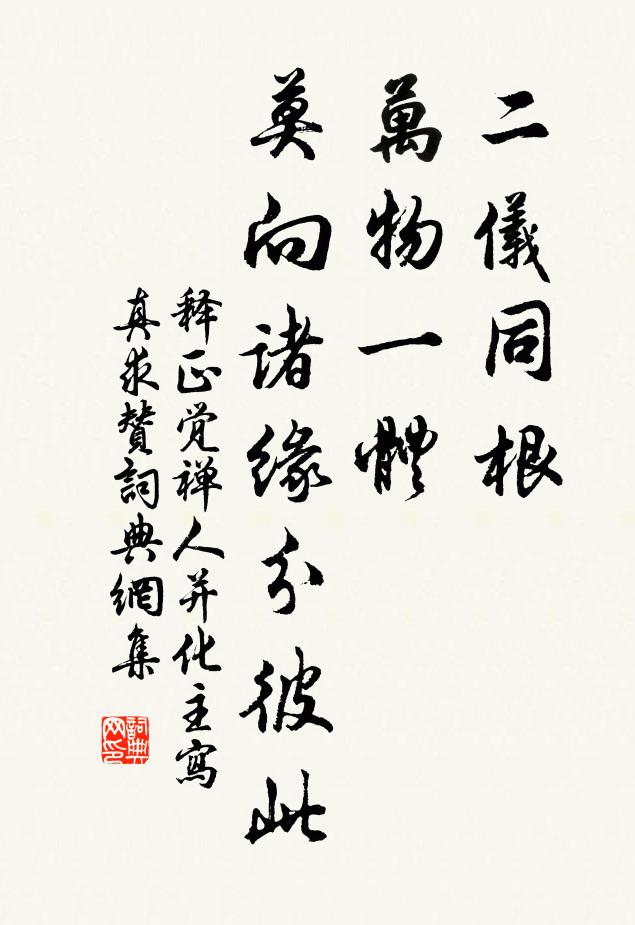 二儀同根
萬物一體
莫向諸緣分彼此
释正觉禅人并化主寫
真求赞詞典網集
詞典网印